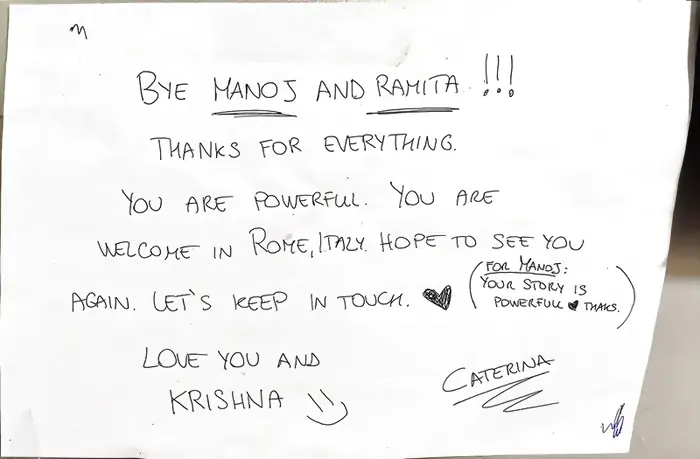 BYE MANOJ AND RAMITA !!!
THANKS FOR EVERYTHING.
YOU ARE POWERFUL. YOU ARE
WELCOME IN ROME, ITALY. HOPE TO SEE YOU
AGAIN. LET'S KEEP IN TOUCH. ♥
(FOR MANOJ:
YOUR STORY IS
POWERFULL ♥ THAKS.)
LOVE YOU AND
KRISHNA
CATERINA